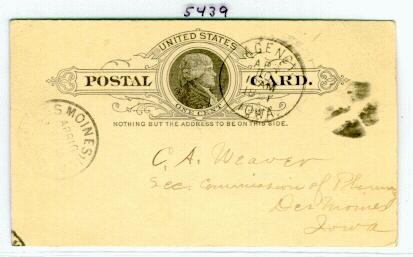 5439
UNITED STATES
POSTAL CARD.
ONE CENT
NOTHING BUT THE ADDRESS BE ON THIS SIDE.
AGENCY
AP
AM
IOWA.
S MOINES
APR
C. A. Weaver
Sec. Commission of
Des Moines
Iowa